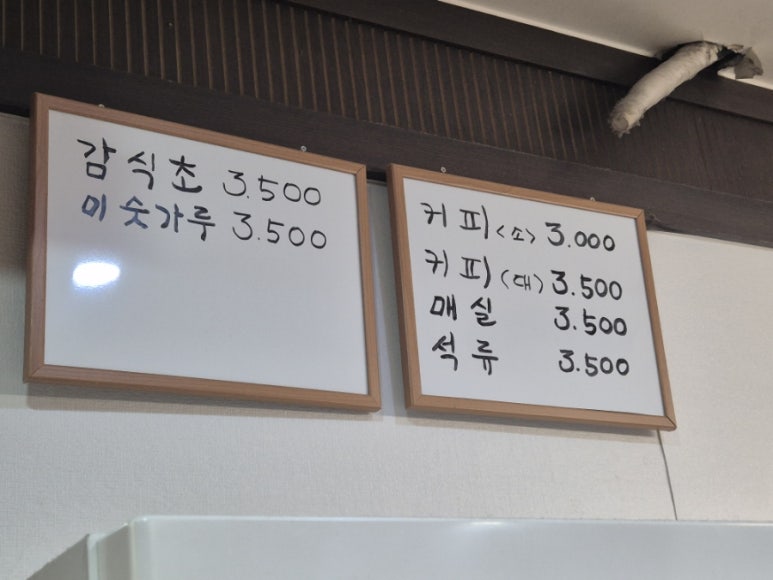 감식초 3.500
미숫가루 3.500
커피<소> 3.000
커피(대) 3.500
매실 3.500
석류 3.500